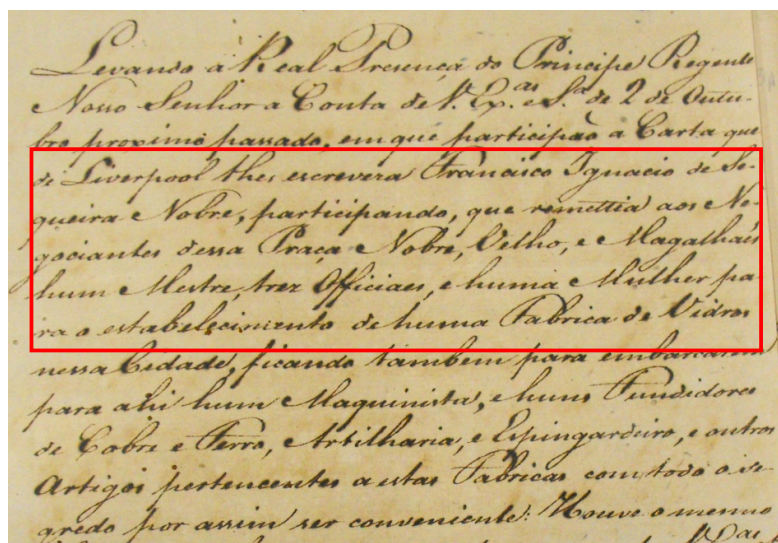 Levando á Real Presença do Principe Regente
Nosso Senhor a Conta de V. Ex.as e S.a de 2 de Outu-
bro proximo passado, em que participão a Carta que
de Liverpool thes escrevera Francisco Ignacio de Se-
queira Nobre, participando, que remettia aos Ne-
gociantes dessa Praça Nobre, Velho, e Magalhaẽs
hum Mestre, trez Officiaes, e huma Mulher pa-
ra o estabelecimento de huma Fabrica de Vidros
nessa Cidade, ficando tambem para embarcarem
para ahi hum Maquinista, e huns Fundidores
de Cobre e Ferro, Artilharia, e Espingardeiro, e outros
Artigos pertencentes a estas Fabricas com todo o se-
gredo por assim ser conveniente: Houve o mesmo